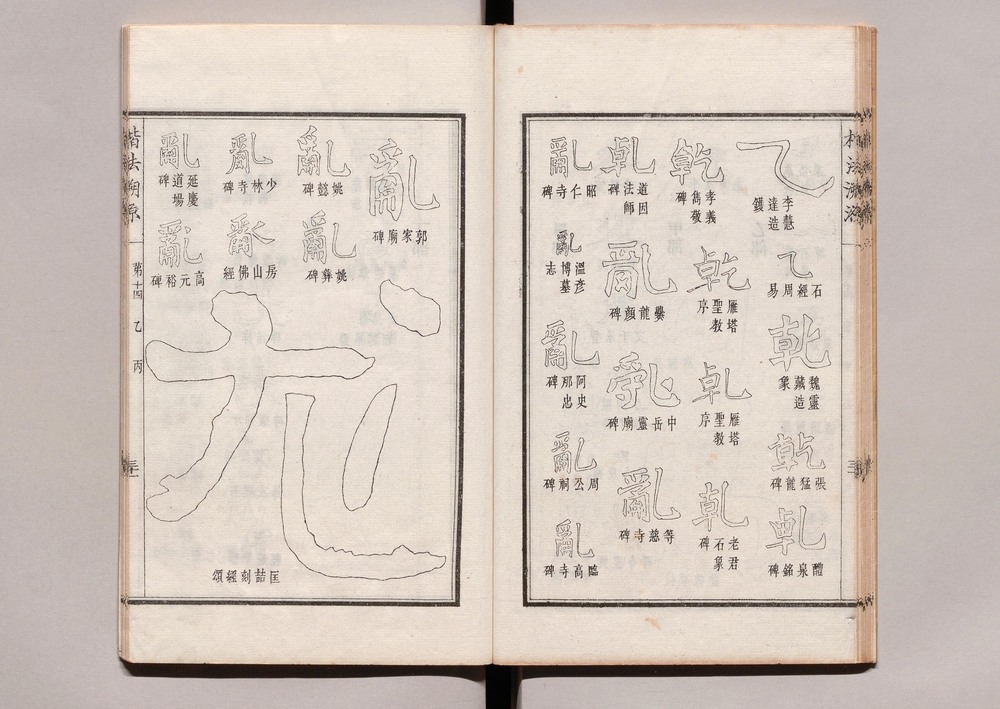 乙
李慧達造鑊
乙
石經周易
乾
魏靈藏造象
乾
張猛龍碑
乾
醴泉銘碑
乾
孝義雋敬碑
乾
雁塔聖教序
乾
雁塔聖教序
乾
老君石象碑
乾
道因法師碑
亂
爨龍顏碑
亂
中岳靈廟碑
亂
等慈寺碑
亂
昭仁寺碑
亂
溫彥博墓志
亂
阿史那忠碑
亂
周公祠碑
亂
臨高寺碑
亂
郭家廟碑
亂
姚懿碑
亂
姚彝碑
亂
少林寺碑
亂
房山佛經
亂
延慶道場碑
亂
高元裕碑
尤
匡喆刻經頌
楷法溯源
第十四 乙 丙